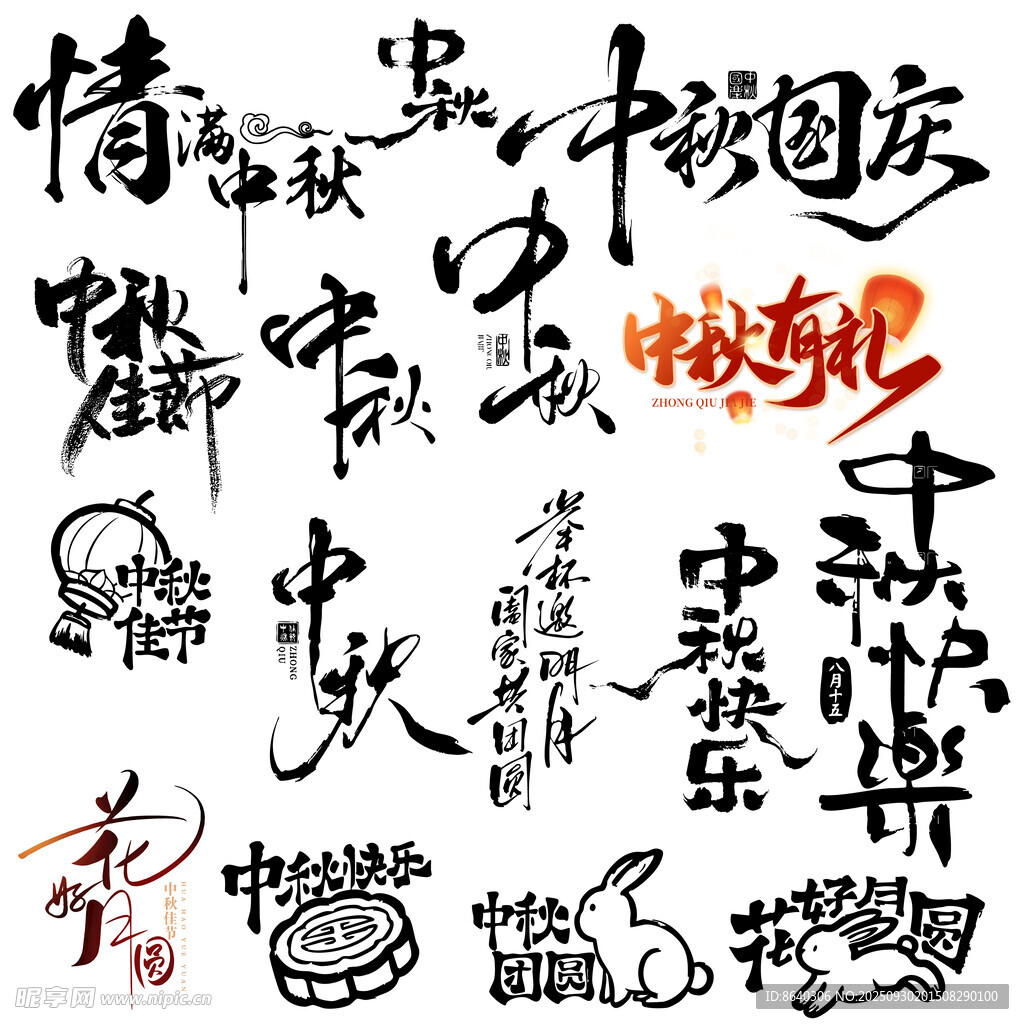 情满中秋
中秋
中秋国庆
中秋
國慶
中秋佳節
中秋
中秋
中秋
ZHONG QIU
JIA JIE
中秋有礼
ZHONG QIU JIA JIE
中秋
佳节
中秋
ZHONG
QIU
举杯邀明月
阖家共团圆
中秋快乐
中秋快樂
八月十五
花好月圆
中秋佳节
HUA HAO YUE YUAN
中秋快乐
中秋
团圆
花好月圆
昵享网 www.nipic.cn
ID:8640306 NO:20250930201508290100